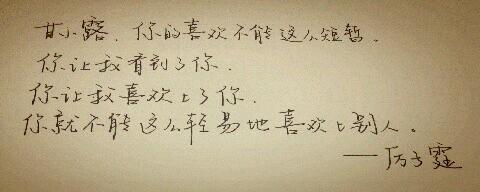 甘小露，你的喜欢不能这么短暂。
你让我看到了你，
你让我喜欢上了你，
你就不能这么轻易地喜欢上别人。
——厉子霆